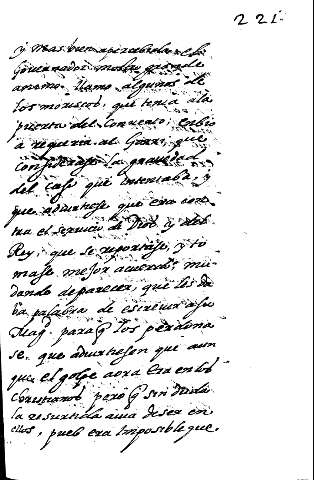 221.
y mas bien apercebido el
Governador mostro grande
animo. llamo algunos de
los moriscos, que tenia a la
puerta del Convento; enbio
a requerir al Gran, que
considerase la gravedad
del caso que intentaba, y
que advirtiese que era con
tra el servicio de Dios y del
Rey; que se reportase, y to
mase mejor acuerdo, mu
dando de parecer, que les da
ba palabra de escrevir a su
Mag. para q los perdona
se. que advirtiesen que aun
que el golpe aora era en los
Christianos pero q sin duda
la resurtida avia de ser en
ellos, pues era imposible que.